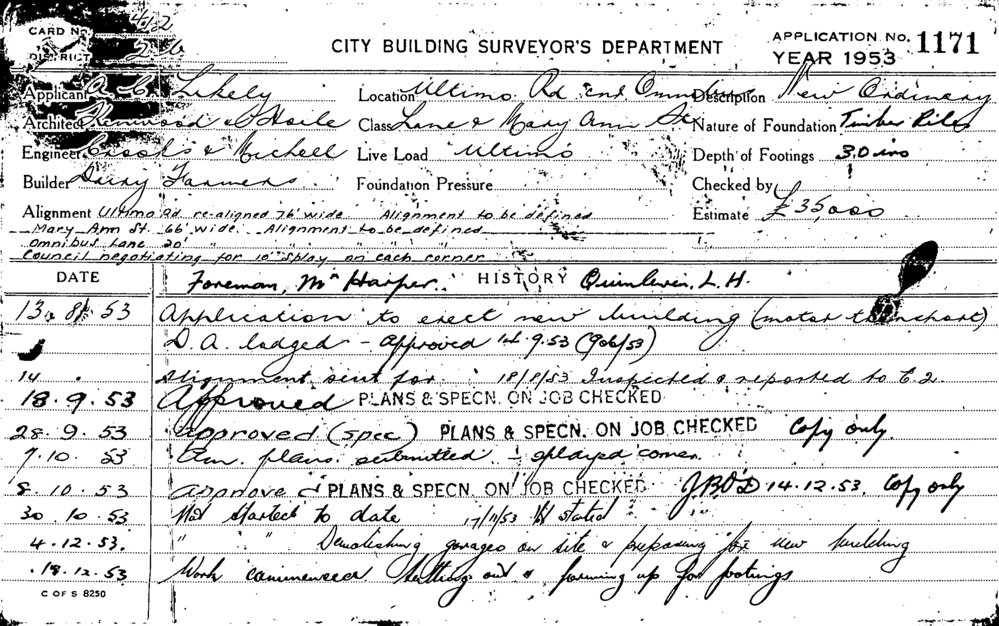 CARD No.
DISTRICT
CITY BUILDING SURVEYOR'S DEPARTMENT
APPLICATION No. 1171
YEAR 1953
Applicant A. C. Likely
Location Ultimo Rd Cnr Omnibus
Description New Ordinary
Architect & Hoile
Class Lane & Mary Ann St
Nature of Foundation Timber Piles
Engineer & Michell
Live Load Ultimo
Depth of Footings 30 ins
Builder Dairy Farmers
Foundation Pressure
Checked by
Alignment Ultimo Rd re-aligned 76' wide Alignment to be defined
Estimate £35000
Mary Ann St. 66' wide. Alignment to be defined
Omnibus Lane 20' " " " "
Council negotiating for 10' splay on each corner
DATE Foreman, Mr Harper. HISTORY Quinlivin, L. H.
13. 8. 53 Application to erect new building (motor)
D. A. lodged - approved 14.9.53 (906/53)
14 . Alignment sent for. 18/8/53 Inspected & reported to C.2.
18. 9. 53 Approved PLANS & SPECN. ON JOB CHECKED
28. 9. 53 approved (spec) PLANS & SPECN. ON JOB CHECKED Copy only.
7. 10. 53 Am. plans. submitted - splayed corner.
8. 10. 53 Approved PLANS & SPECN. ON JOB CHECKED 14.12.53. Copy only
30. 10. 53 Not started to date 17/11/53 Not started
4. 12. 53. " " Demolishing garages on site & preparing for new building
18. 12. 53 Work commenced setting out & forming up for footings
C OF S 8250